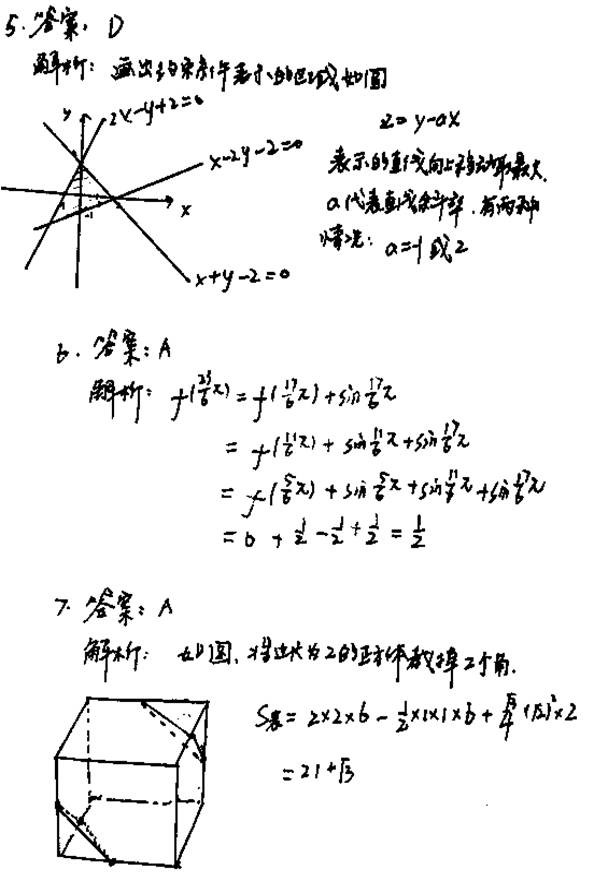 5. 答案: D
解析: 画出约束条件表示的区域如图
y
2x-y+2=0
x-2y-2=0
x
x+y-2=0
z=y-ax
表示的直线向上移动取最大.
a代表直线斜率. 有两种
情况: a=-1或2
6. 答案: A
解析: f(23/6 π) = f(17/6 π) + sin 17/6 π
= f(11/6 π) + sin 11/6 π + sin 17/6 π
= f(5/6 π) + sin 5/6 π + sin 11/6 π + sin 17/6 π
= 0 + 1/2 - 1/2 + 1/2 = 1/2
7. 答案: A
解析: 如图, 将边长为2的正方体截掉2个角.
S表 = 2×2×6 - 1/2×1×1×6 + √3/4 (√2)²×2
= 21+√3